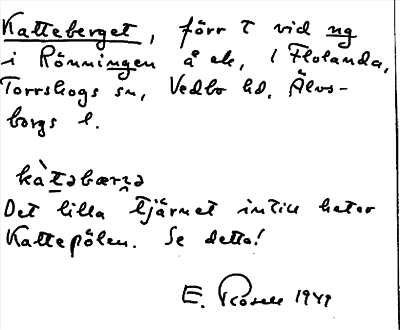 Katteberget, förr T vid ng
i Rönningen å ek, 1 Flolanda,
Torrskogs sn, Vedbo hd, Älvs-
borgs l.
kàtəbærɲə
Det lilla tjärnet intill heter
Kattepölen. Se detta!
E. Rosell 1949